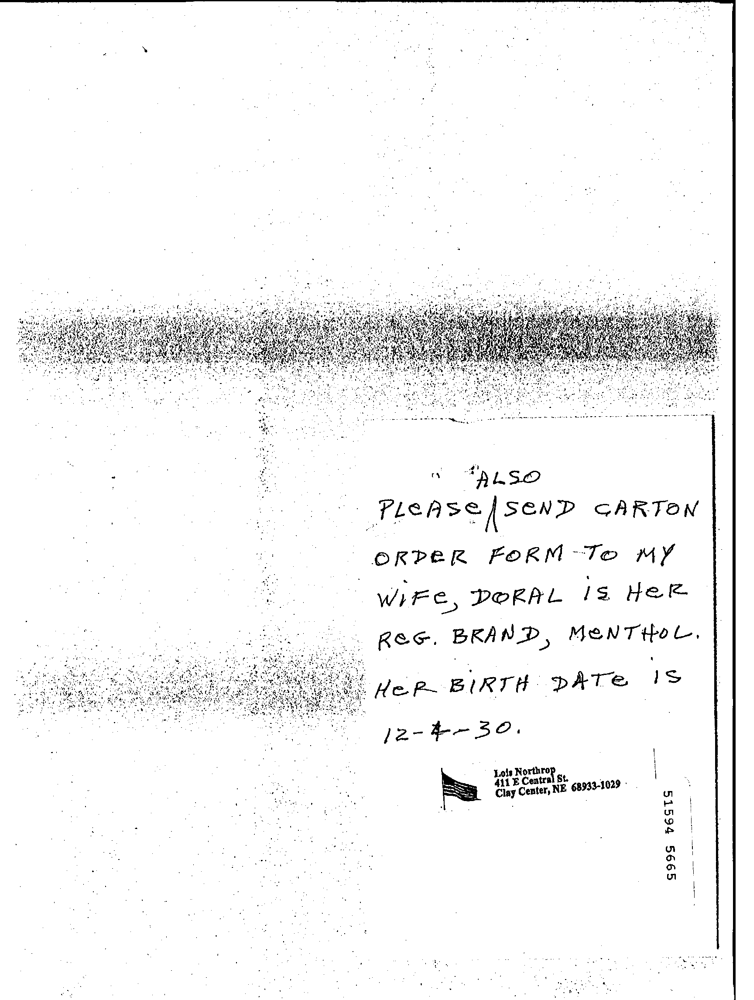 "ALSO
PLEASE/SEND CARTON
ORDER FORM TO MY
WIFE, DORAL IS HER
REG. BRAND, MENTHOL.
HER BIRTH DATE IS
12-4-30.
Lois Northrop
411 E Central St.
Clay Center, NE 68933-1029
51594 5665